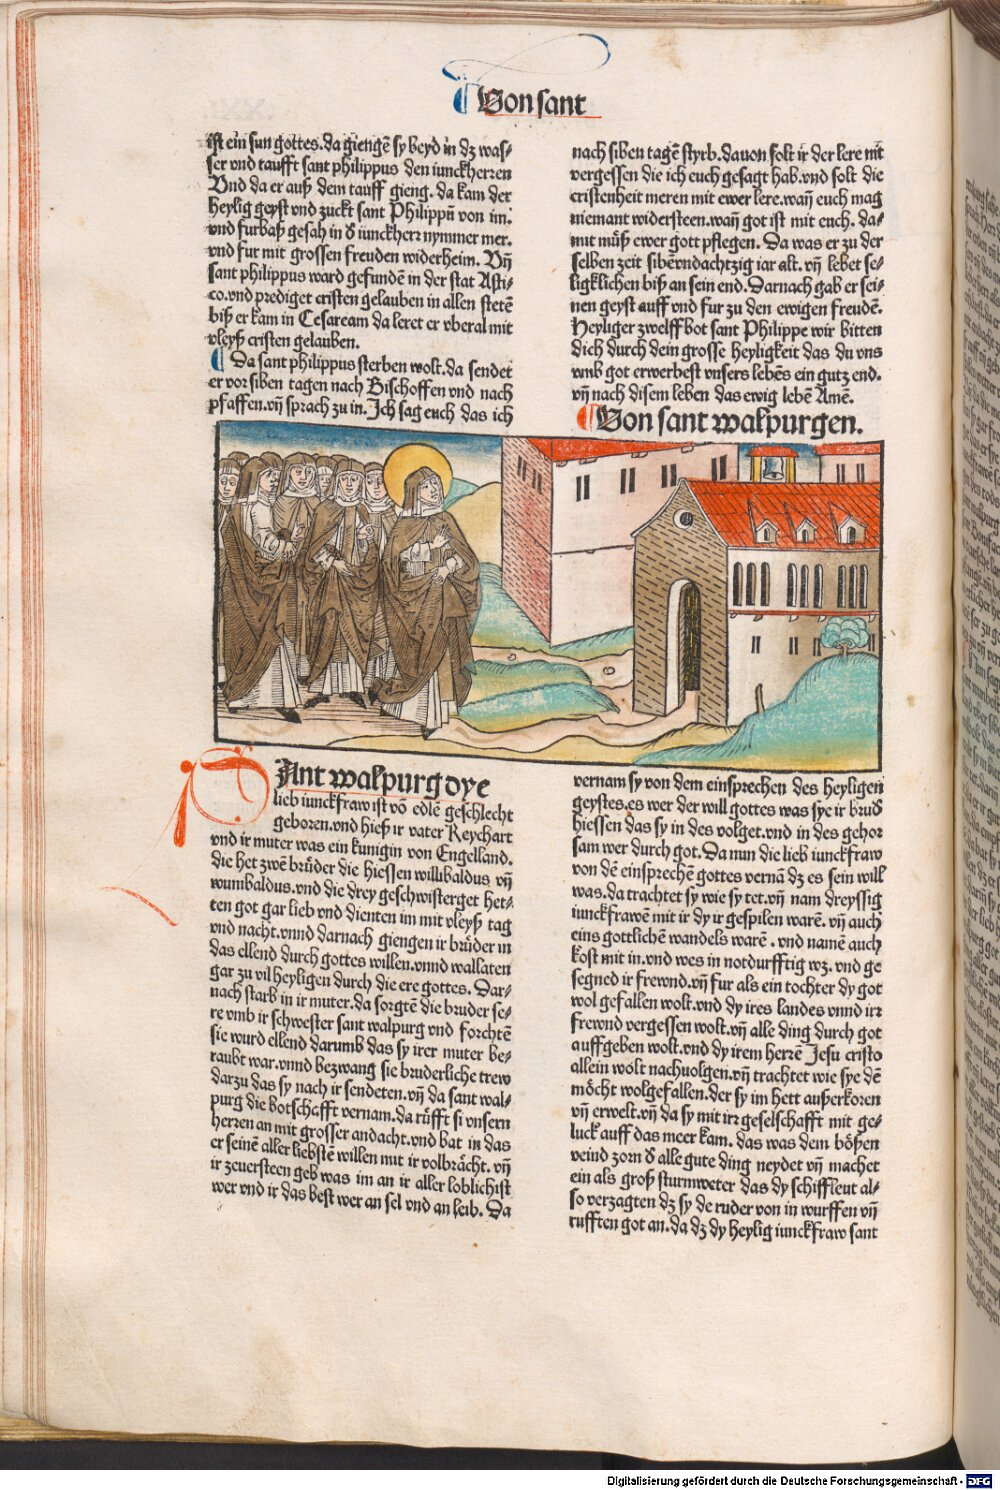 Von sant
ist ein sun gottes.da giengē sy beyd in dz was⸗
ser vnd taufft sant philippus den iunckherren
Vnd da er auß dem tauff gieng. da kam der
heylig geyst vnd zuckt sant Philippū von im.
vnd furbaß gesah in ð iunckherr nymmer mer.
vnd fur mit grossen freuden widerheim. Vn̄
sant philippus ward gefundē in der stat Asti⸗
co.vnd prediget cristen gelauben in allen stetē
biß er kam in Cesaream da leret er vberal mit
vleyß cristen gelauben.
Da sant philippus sterben wolt.da sendet
er vor siben tagen nach Bischoffen vnd nach
pfaffen.vn̄ sprach zu in.Ich sag euch das ich
nach siben tagē styrb.dauon solt ir der lere nit
vergessen die ich euch gesagt hab.vnd solt die
cristenheit meren mit ewer lere.wan̄ euch mag
niemant widersteen.wan̄ got ist mit euch. da⸗
mit müß ewer gott pflegen. Da was er zu der
selben zeit sibēvndachtzig iar alt. vn̄ lebet se⸗
ligklichen biß an sein end. Darnach gab er sei⸗
nen geyst auff vnd fur zu den ewigen freudē.
Heyliger zwelffbot sant Philippe wir bitten
dich durch dein grosse heyligkeit das du vns
vmb got erwerbest vnsers lebēs ein gutz end.
vn̄ nach disem leben das ewig lebē Amē.
Von sant walpurgen.
SAnt walpurg dye
lieb iunckfraw ist vō edlē geschlecht
geboren.vnd hieß ir vater Reychart
vnd ir muter was ein kunigin von Engelland.
die het zwē brüder die hiessen willibaldus vn̄
wumbaldus.vnd die drey geschwisterget het⸗
ten got gar lieb vnd dienten im mit vleyß tag
vnd nacht.vnnd darnach giengen ir brüder in
das ellend durch gottes willen.vnnd wallaten
gar zu vil heyligen durch die ere gottes. Dar⸗
nach starb in ir muter.da sorgtē die bruder se⸗
re vmb ir schwester sant walpurg vnd forchtē
sie wurd ellend darumb das sy irer muter be⸗
raubt war.vnnd bezwang sie bruderliche trew
darzu das sy nach ir sendeten.vn̄ da sant wal⸗
purg die botschafft vernam.da rüfft si vnsern
herren an mit grosser andacht.vnd bat in das
er seinē aller liebstē willen mit ir volbrächt. vn̄
ir zeuersteen geb was im an ir aller loblichist
wer vnd ir das best wer an sel vnd an leib. Da
vernam sy von dem einsprechen des heyligen
geystes.es wer der will gottes was sye ir brüd
hiessen das sy in des volget.vnd in des gehor
sam wer durch got. Da nun die lieb iunckfraw
von dē einsprechē gottes vernā dz es sein will
was.da trachtet sy wie sy tet.vn̄ nam dreyssig
iunckfrawē mit ir dy ir gespilen warē. vn̄ auch
eins gottlichē wandels warē . vnd namē auch
kost mit in.vnd wes in notdurfftig wz. vnd ge
segned ir frewnd.vn̄ fur als ein tochter dy got
wol gefallen wolt.vnd dy ires landes vnnd irr
frewnd vergessen wolt.vn̄ alle ding durch got
auffgeben wolt.vnd dy irem herrē Jesu cristo
allein wolt nachuolgen.vn̄ trachtet wie sye dē
möcht wolgefallen.der sy im hett außerkoren
vn̄ erwelt.vn̄ da sy mit irr geselschafft mit ge⸗
luck auff das meer kam. das was dem bößen
veind zorn ð alle gute ding neydet vn̄ machet
ein als groß sturmweter das dy schiffleut al⸗
so verzagten dz sy de ruder von in wurffen vn̄
rufften got an.da dz dy heylig iunckfraw sant
Digitalisierung gefördert durch die Deutsche Forschungsgemeinschaft - DFG